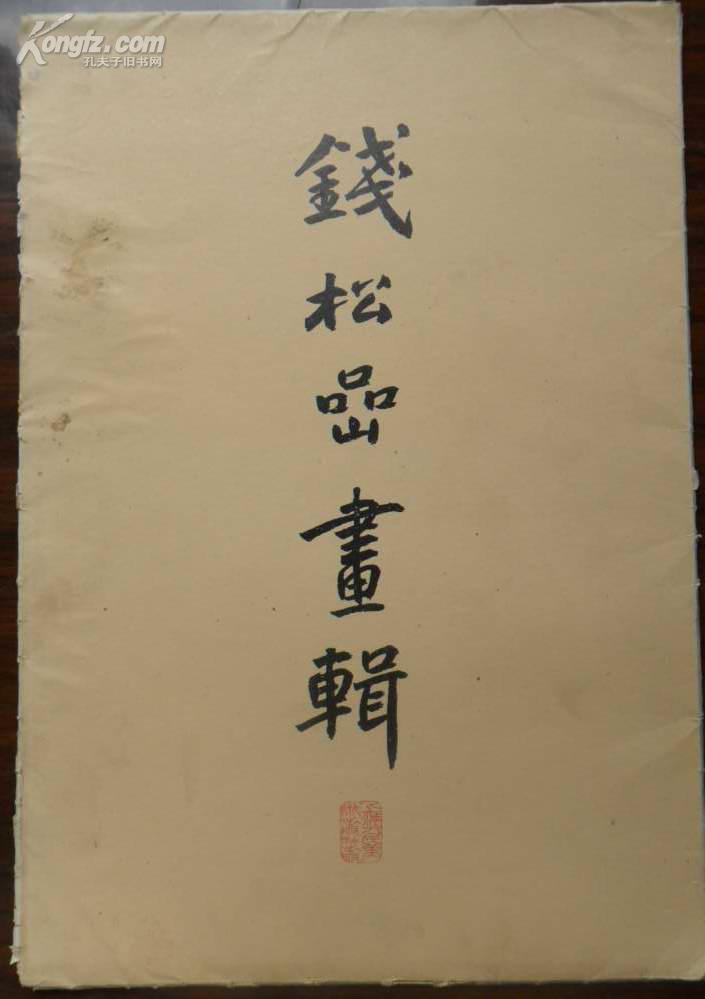 Kongfz.com
孔夫子旧书网
錢松嵒畫輯